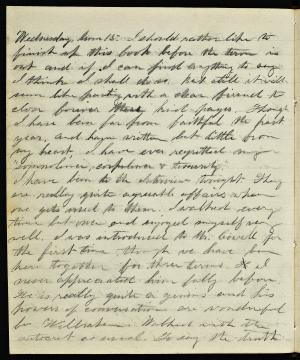 Wednesday June 15. I should rather like to
finish up this book before the term is
out and if I can find anything to say
I think I shall do so. Yet still it will
seem like parting with a dear friend to
close     kind pages. Though
I have been far from faithful the past
year, and have written but little from
my heart, I have ever regretted my

I have been to the      tonight. They
are really quite agreeable affairs when
one gets used to them. I walked every
time but once and enjoyed myself very
well. I was introduced to Mr.      for
the first time though we have been
here together for three terms. & I
never appreciated him fully before.
He is really quite a genius and his
powers of conversation are wonderful
      Walked with the
      as usual. To say the truth